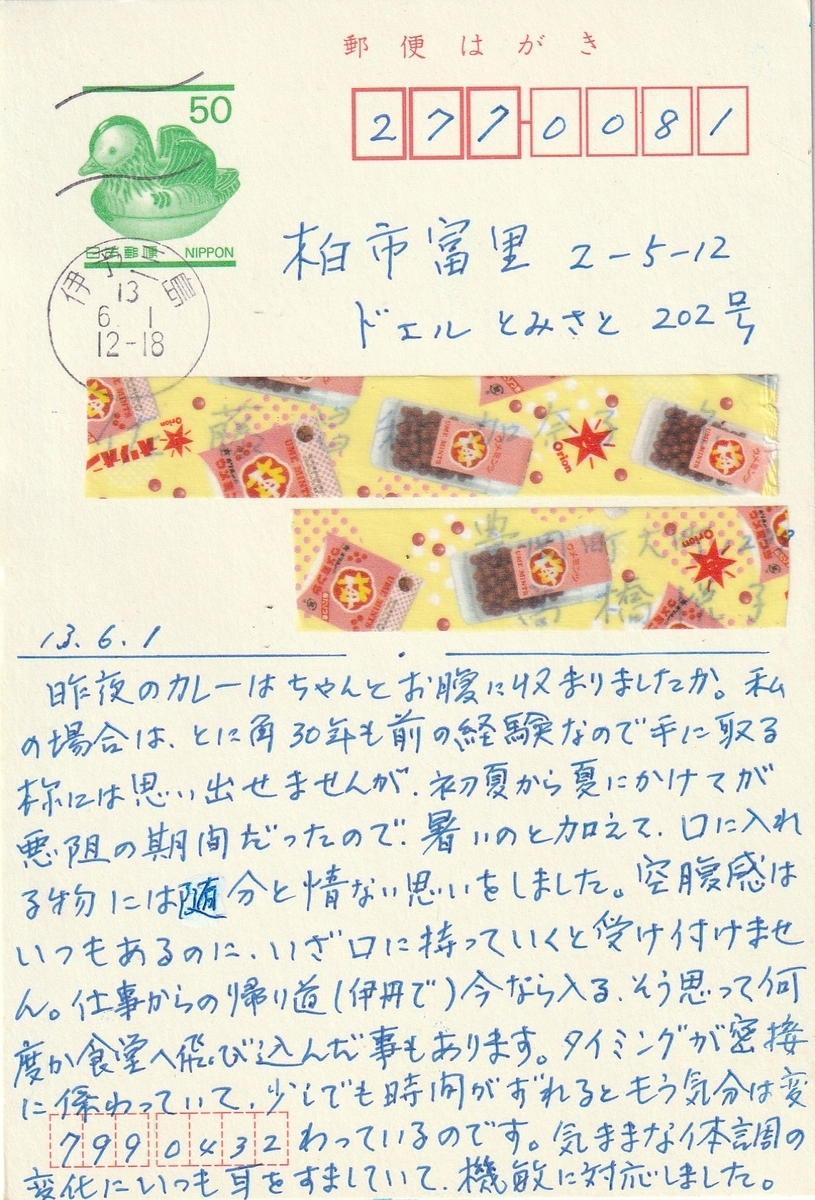 郵便はがき
50
277-0081
日本郵便 NIPPON
柏市富里 2-5-12
ドエルとみさと 202号
伊予三島
13
6. 1
12-18
オリオン
Orion
UME MINTS
ウメミンツ
梅
Orion
Orion
UME MINTS
ウメミンツ
梅
13. 6. 1
昨夜のカレーはちゃんとお腹に収まりましたか。私
の場合は、とに角30年も前の経験なので手に取る
様には思い出せませんが、初夏から夏にかけてが
悪阻の期間だったので、暑いのと加えて、口に入れ
る物には随分と情ない思いをしました。空腹感は
いつもあるのに、いざ口に持っていくと受け付けませ
ん。仕事からの帰り道(伊丹で)今なら入る、そう思って何
度か食堂へ飛び込んだ事もあります。タイミングが密接
に係わっていて、少しでも時間がずれるともう気分は変
7990432
わっているのです。気ままな体調の
変化にいつも耳をすましていて、機敏に対応しました。